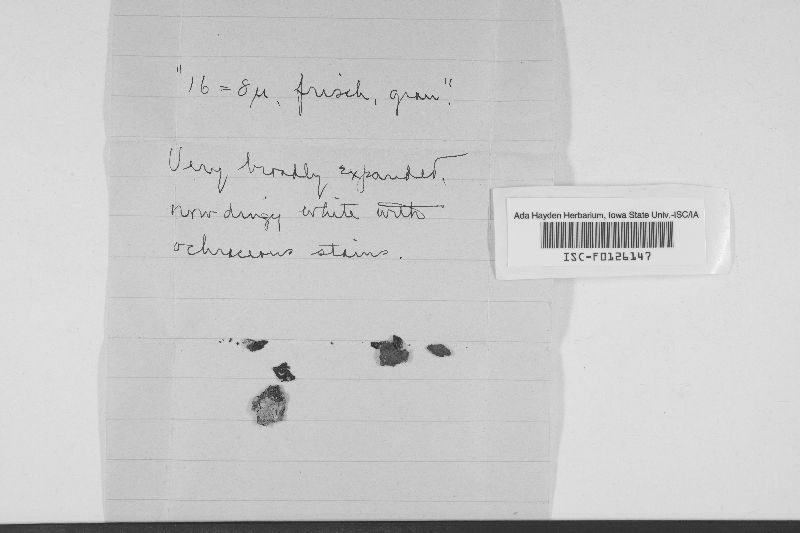 "16 = 8µ, frisch, grau".
Very broadly expanded,
now dingy white with
ochraceous stains.
Ada Hayden Herbarium, Iowa State Univ.-ISC/IA
ISC-F0126147